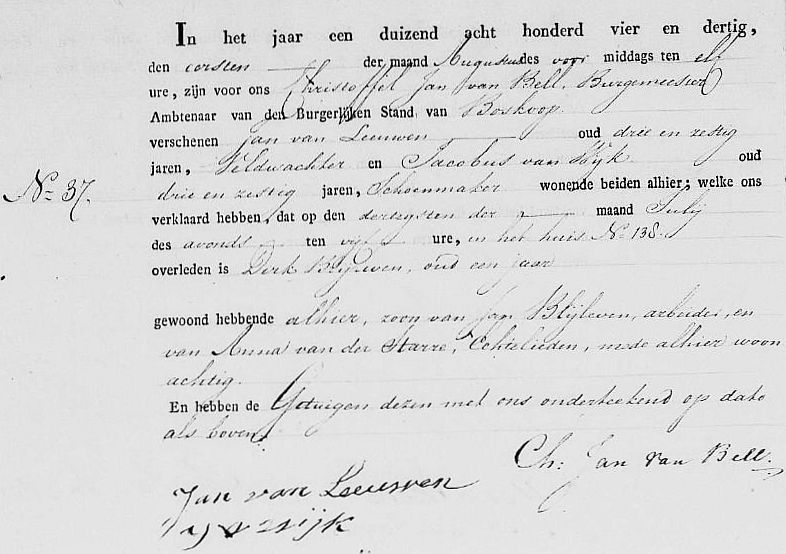 In het jaar een duizend acht honderd vier en dertig,
den eersten der maand Augustus des voor middags ten elf
ure, zijn voor ons Christoffel Jan van Bell, Burgemeester
Ambtenaar van den Burgerlijken Stand van Boskoop
verschenen Jan van Leeuwen oud drie en zestig
jaren, Veldwachter en Jacobus van Rijk oud
No 37.
drie en zestig jaren, Schoenmaker wonende beiden alhier; welke ons
verklaard hebben, dat op den dertigsten der maand Julij
des avonds ten vijf ure, in het huis No 138.
overleden is Dirk Blijleven, oud een jaar
gewoond hebbende alhier, zoon van Jan Blijleven, arbeider, en
van Anna van der Starre, Echtelieden, mede alhier woon
achtig.
En hebben de Getuigen dezen met ons onderteekend op dato
als boven.
Ch: Jan van Bell.
Jan van Leeuwen